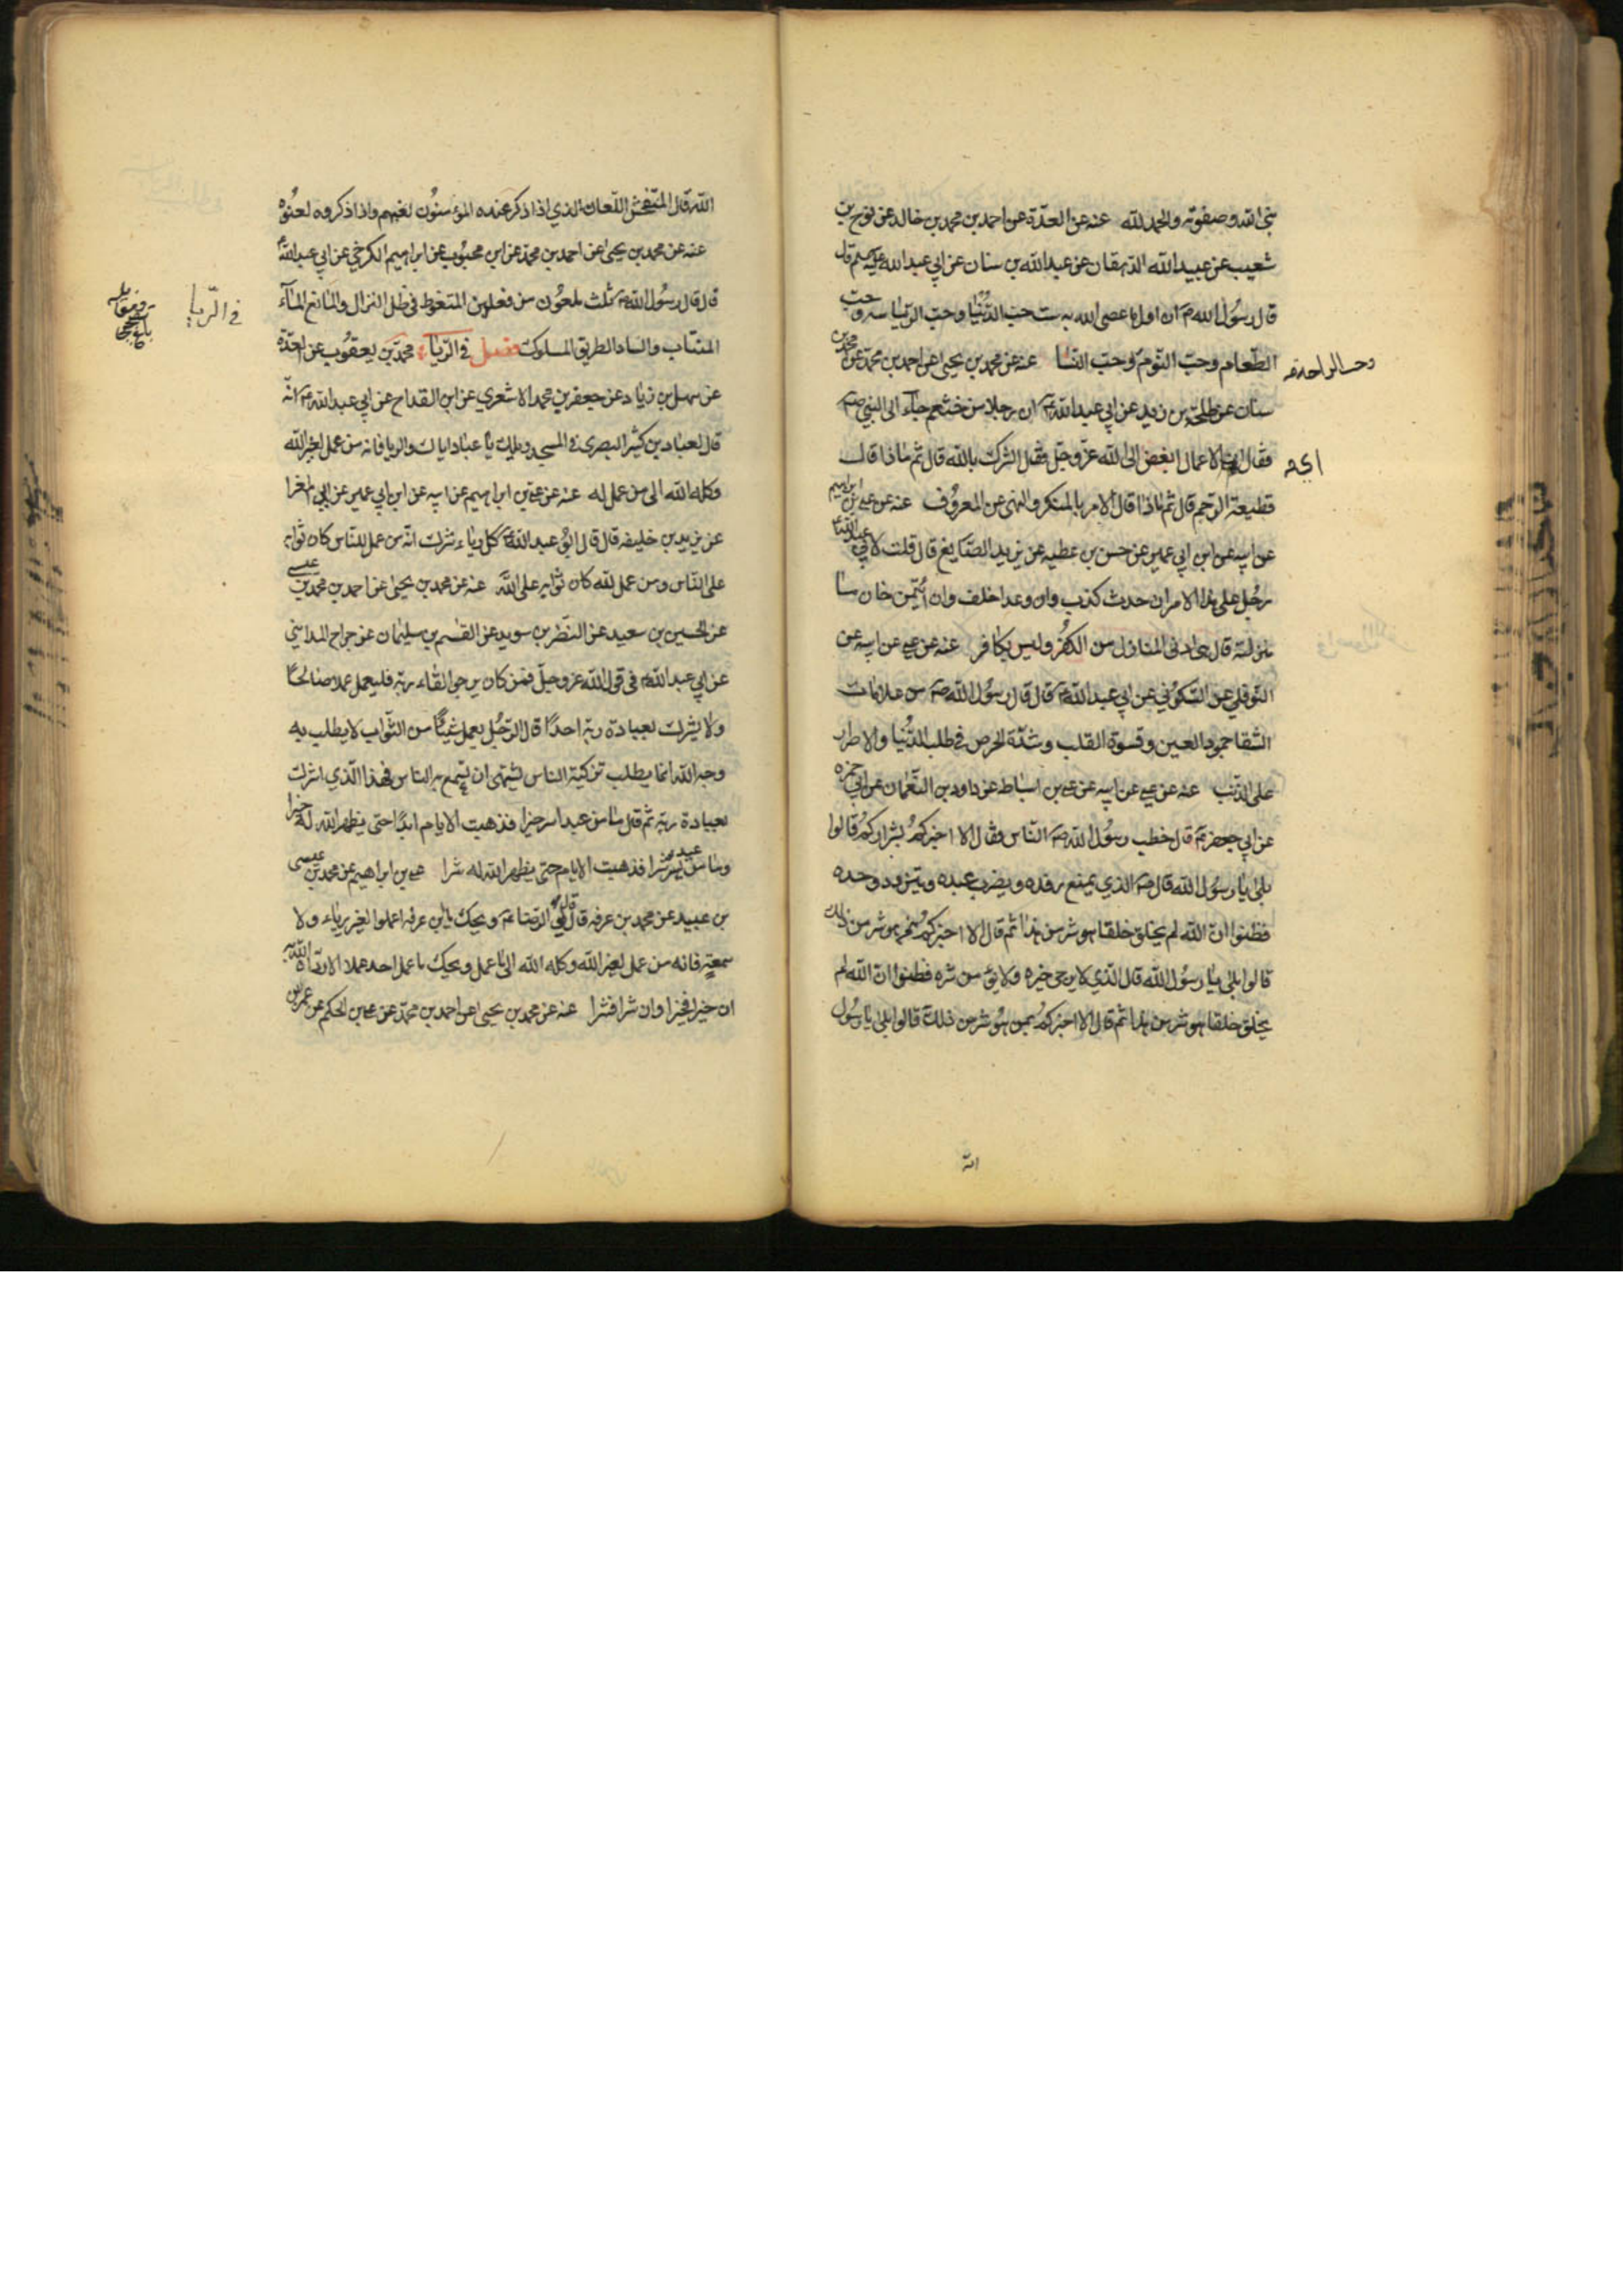 نبي الله وصفوته والحمد لله عنه عن العدّة عن احمد بن محمد بن خالد عن نوح بن
شعيب عن عبيد الله الدهقان عن عبد الله بن سنان عن ابي عبد الله عليه السلم قال
قال رسُول الله ص ان اول ما عصى الله به ست حبّ الدُّنيا وحبّ الرياسه وحبّ
الطّعام وحبّ النّوم وحبّ النّسا عنه عن محمد بن يحيى عن احمد بن محمّد عن محمد بن
وحب الراحة
سنان عن طلحة بن زيد عن ابي عبد الله ع ان رجلا من خثعم جاء الى النبي ص
فقال اي الاعمال ابغض الى الله عزّ وجلّ فقال الشرك بالله قال ثم ماذا قال
اي
قطيعة الرّحم قال ثم ماذا قال الامر بالمنكر والنهى عن المعرُوف عنه عن علي بن ابراهيم
عن ابيه عن ابن ابي عمير عن حسن بن عطيه عن يزيد الصّايغ قال قلت لابي عبد الله ع
رجُل على هذا الامر ان حدث كذب وان وعد اخلف وان ائتمن خان ما
منزلته قال هي ادنى المنازل من الكفُر وليس بكافر عنه عن علي عن ابيه عن
النّوفلي عن السّكوُني عن ابي عبد الله ع قال قال رسُول الله ص من علامات
الشّقا جمود العين وقسوة القلب وشدّة الحرص في طلب الدُّنيا والاصرار
على الذّنب عنه عن علي عن ابيه عن علي بن اسباط عن داود بن النّعمان عن ابي حمزه
عن ابي جعفر ع قال خطب رسُول الله ص النّاس فقال الا اخبركم بشراركمُ قالوا
بلى يا رسُول الله قال ص الذي يمنع رفده ويضرب عبده ويتزود وحده
فظنوا انّ الله لم يخلق خلقا هو شر من هذا ثم قال الا اخبركمُ بمن هو شر من ذلك
قالوا بلى يا رسُول الله قال الّذي لا يرجى خيره ولا يؤمن شره فظنوا انّ الله لم
يخلق خلقا هو شر من هذا ثم قال الا اخبركمُ بمن هُو شر من ذلك قالوا بلى يا رسُول
الله
الله قال المتفحش اللّعان الذي اذا ذكر عنده المؤمنُون لعنهم واذا ذكروه لعنُوه
عنه عن محمد بن يحيى عن احمد بن محمّد عن ابن محبُوب عن ابراهيم الكرخي عن ابي عبد الله ع
قال قال رسُول الله ص ثلث ملعُون من فعلهن المتغوط في ظل النزال والمانع المآء
المنتاب والساد الطريق المسلوك فصل في الرّيآء محمّد بن يعقُوب عن العدّة
في الرّيا
عن سهل بن زياد عن جعفر بن محمد الاشعري عن ابن القداح عن ابي عبد الله ع انّه
قال لعباد بن كثير البصرى في المسجد ويلك يا عباد اياك والريا فانه من عمل لغير الله
وكله الله الى من عمل له عنه عن علي بن ابراهيم عن ابيه عن ابن ابي عمير عن ابي المغرا
عن يزيد بن خليفه قال قال ابوُ عبد الله ع كل رياء شرك انّه من عمل للنّاس كان ثوابه
على النّاس ومن عمل لله كان ثوابه على الله عنه عن محمد بن يحيى عن احمد بن محمد بن عيسى
عن الحسين بن سعيد عن النّضر بن سويد عن القسم بن سليمان عن جراح المدايني
عن ابي عبد الله ع في قول الله عز وجلّ فمن كان يرجو القاء ربّه فليعمل عملا صالحًا
ولا يشرك بعبادة ربّه احدًا قال الرّجُل يعمل شيئًا من الثّواب لا يطلب به
وجه الله انما يطلب تزكية الناس يشتهى ان يسمع به الناس فهذا الّذي اشرك
بعبادة ربّه ثم قال ما من عبد اسر خيرا فذهبت الايام ابدًا حتى يظهر الله له خيرا
وما من عبد يسر شرا فذهبت الايام حتى يظهر الله له شرا علي بن ابراهيم عن محمد بن عيسى
بن عبيد عن محمد بن عرفه قال قال لي الرّضا ع ويحك يا ابن عرفه اعملوا لغير رياء ولا
سمعةٍ فانه من عمل لغير الله وكله الله الى ما عمل ويحك ما عمل احد عملا الا ردّاه الله به
ان خيرا فخيرا وان شرا فشرا عنه عن محمد بن يحيى عن احمد بن محمّد عن علي بن الحكم عن عمر بن